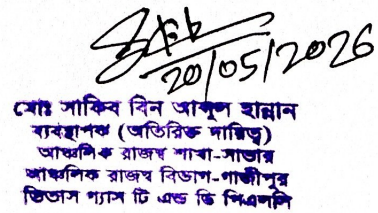 20/05/2026
মোঃ সাকিব বিন আব্দুল হান্নান
ব্যবস্থাপক (অতিরিক্ত দায়িত্ব)
আঞ্চলিক রাজস্ব শাখা-সাভার
আঞ্চলিক রাজস্ব বিভাগ-গাজীপুর
তিতাস গ্যাস টি এন্ড ডি পিএলসি